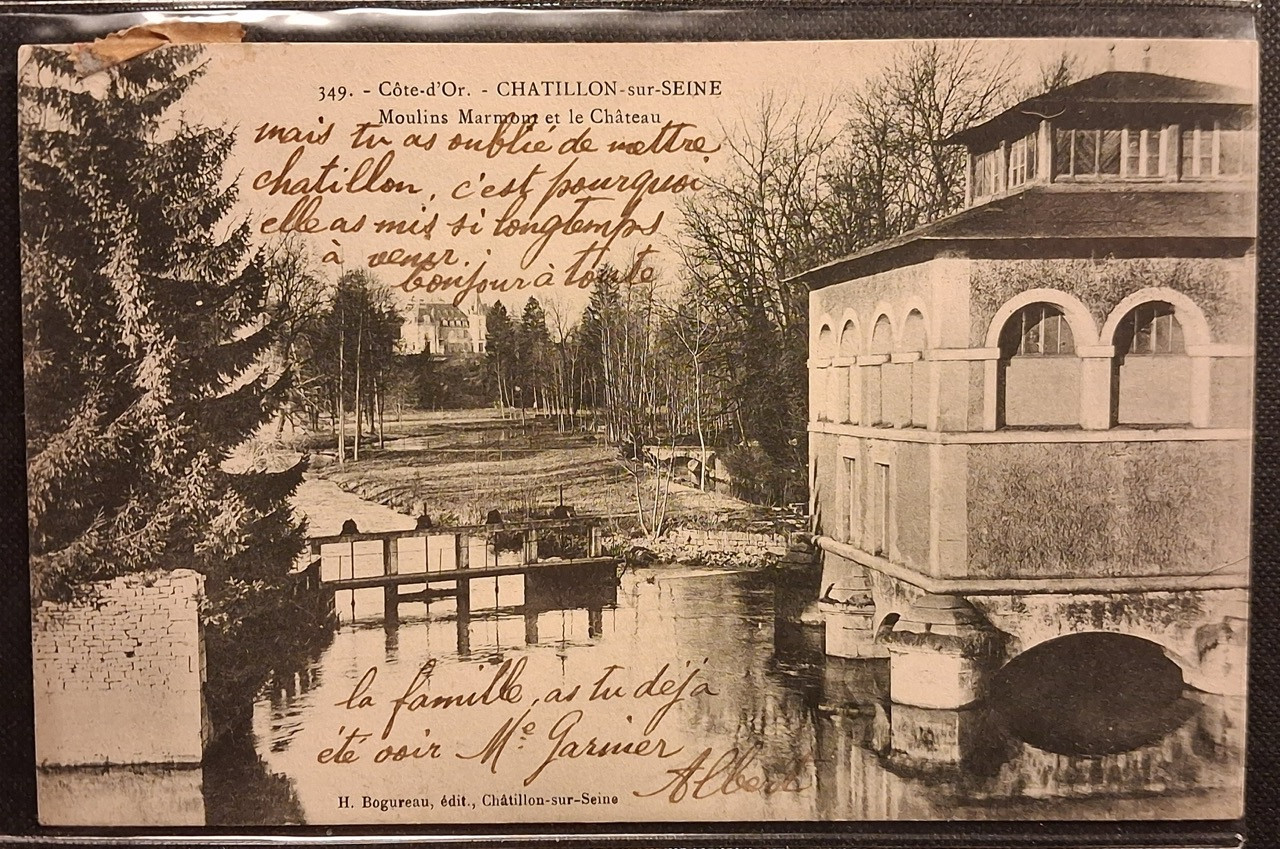 349. - Côte-d'Or. - CHATILLON-sur-SEINE
Moulins Marmont et le Château
mais tu as oublié de mettre
chatillon, c'est pourquoi
elle as mis si longtemps
à venir.
bonjour à toute
la famille, as tu déjà
été voir Me Garnier
Albert
H. Bogureau, édit., Châtillon-sur-Seine